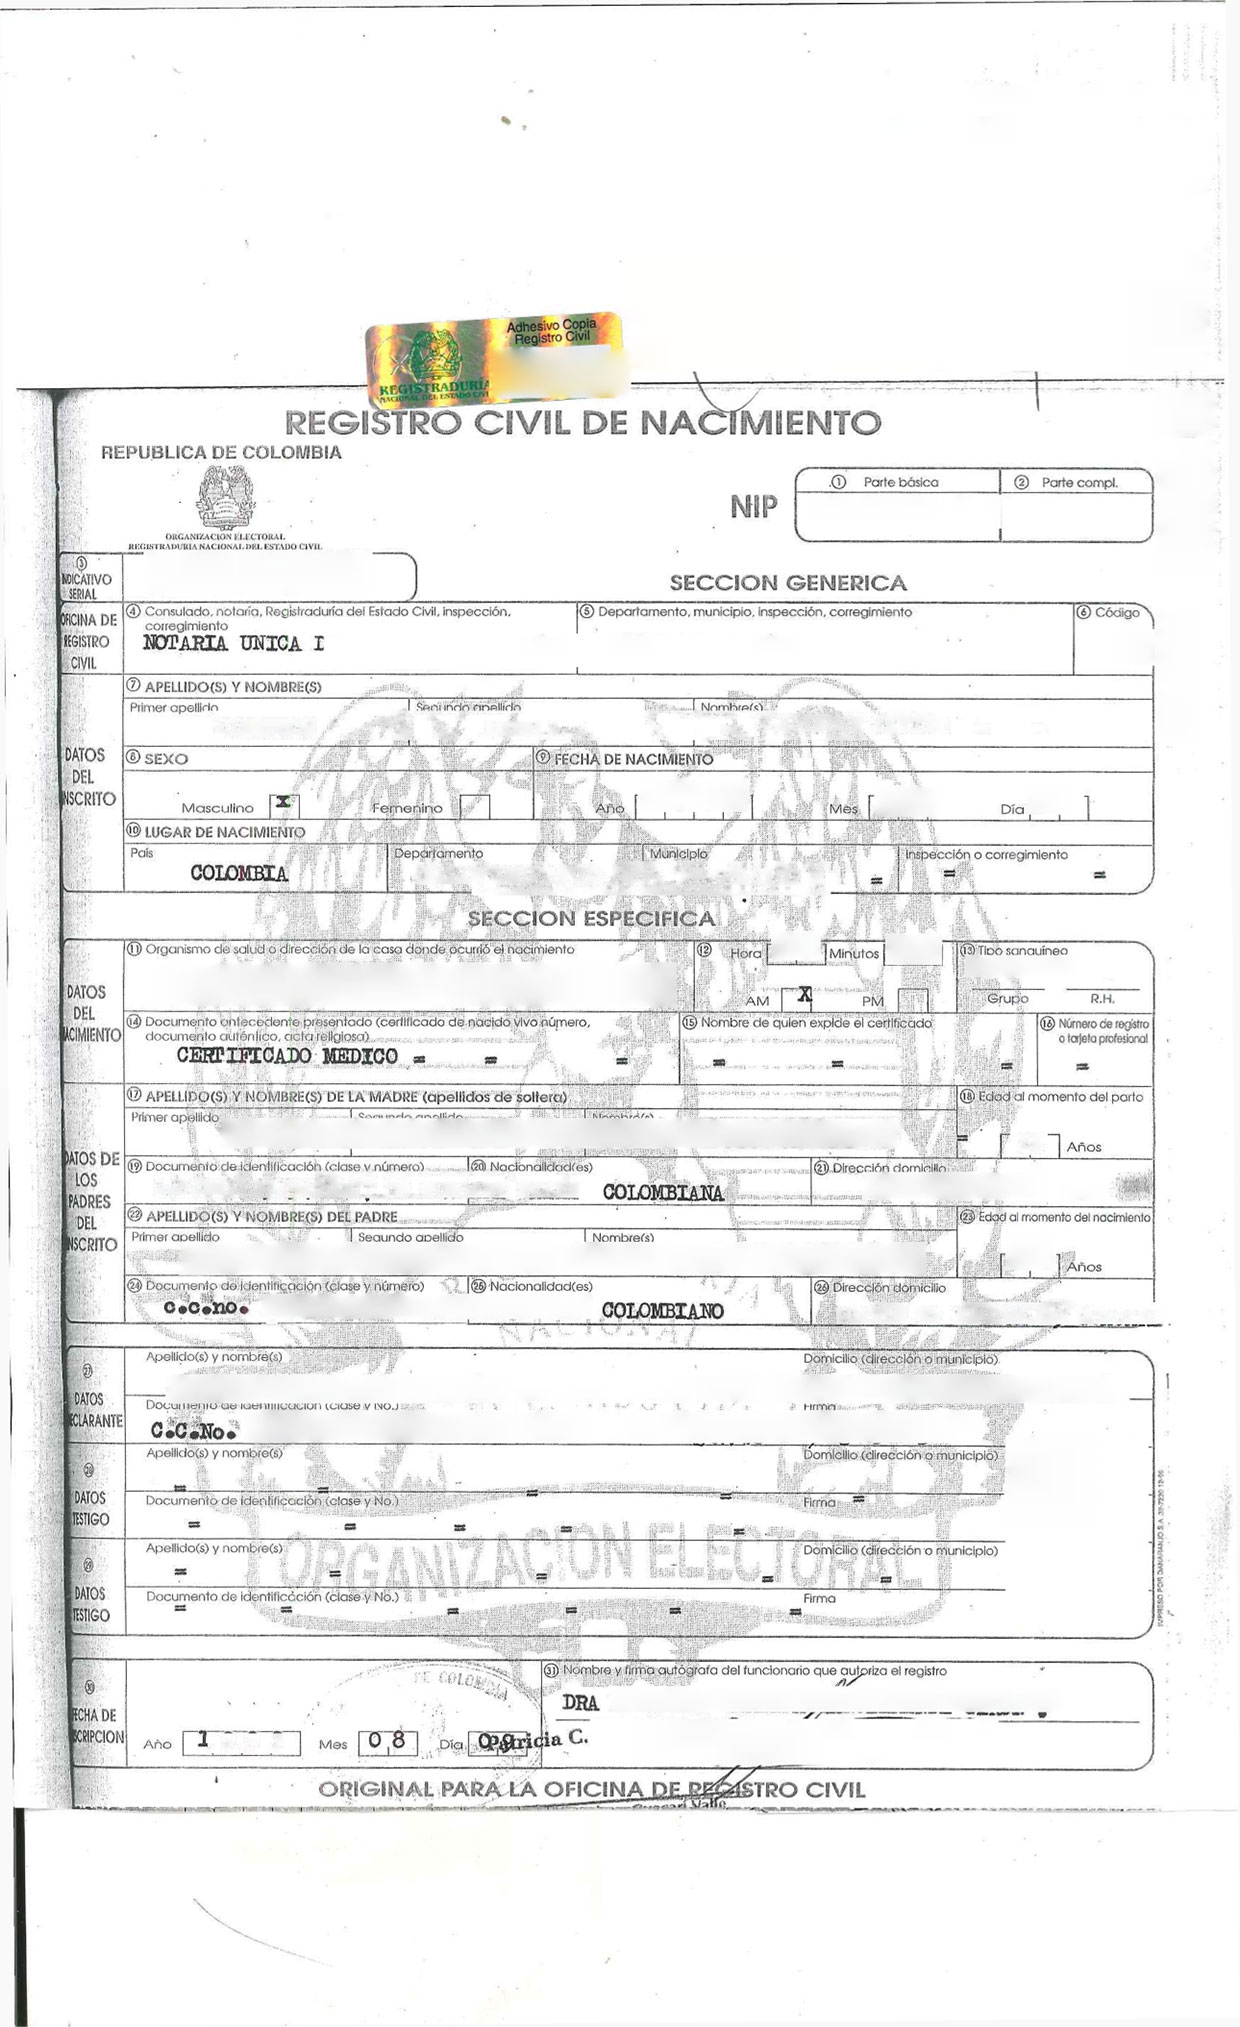 Adhesivo Copia
Registro Civil
REGISTRADURIA
NACIONAL DEL ESTADO CIVIL
REGISTRO CIVIL DE NACIMIENTO
REPUBLICA DE COLOMBIA
ORGANIZACION ELECTORAL
REGISTRADURIA NACIONAL DEL ESTADO CIVIL
NIP
1 Parte básica
2 Parte compl.
3
INDICATIVO
SERIAL
SECCION GENERICA
OFICINA DE
REGISTRO
CIVIL
4 Consulado, notaría, Registraduría del Estado Civil, inspección,
corregimiento
NOTARIA UNICA I
5 Departamento, municipio, inspección, corregimiento
6 Código
DATOS
DEL
INSCRITO
7 APELLIDO(S) Y NOMBRE(S)
Primer apellido Segundo apellido Nombre(s)
8 SEXO 9 FECHA DE NACIMIENTO
Masculino X Femenino Año Mes Día
10 LUGAR DE NACIMIENTO
País Departamento Municipio Inspección o corregimiento
COLOMBIA = = =
SECCION ESPECIFICA
DATOS
DEL
NACIMIENTO
11 Organismo de salud o dirección de la casa donde ocurrió el nacimiento
12 Hora Minutos
13 Tipo sanguíneo
AM X PM Grupo R.H.
14 Documento antecedente presentado (certificado de nacido vivo número,
documento auténtico, acta religiosa)
CERTIFICADO MEDICO = = =
15 Nombre de quien expide el certificado
= = =
16 Número de registro
o tarjeta profesional
=
DATOS DE
LOS
PADRES
DEL
INSCRITO
17 APELLIDO(S) Y NOMBRE(S) DE LA MADRE (apellidos de soltera)
Primer apellido Segundo apellido Nombre(s)
18 Edad al momento del parto
= Años
19 Documento de identificación (clase y número) 20 Nacionalidad(es) 21 Dirección domicilio
COLOMBIANA
22 APELLIDO(S) Y NOMBRE(S) DEL PADRE
Primer apellido Segundo apellido Nombre(s)
23 Edad al momento del nacimiento
Años
24 Documento de identificación (clase y número) 25 Nacionalidad(es) 26 Dirección domicilio
c.c.no. COLOMBIANO
NACIONAL
27
DATOS
DECLARANTE
Apellido(s) y nombre(s) Domicilio (dirección o municipio)
Documento de identificación (clase y No.) Firma
C.C.No.
28
DATOS
TESTIGO
Apellido(s) y nombre(s) Domicilio (dirección o municipio)
= = = = =
Documento de identificación (clase y No.) Firma
= = = = =
29
DATOS
TESTIGO
Apellido(s) y nombre(s) Domicilio (dirección o municipio)
= = = = =
Documento de identificación (clase y No.) Firma
= = = = = =
ORGANIZACION ELECTORAL
30
FECHA DE
INSCRIPCION
DE COLOMBIA
31 Nombre y firma autógrafa del funcionario que autoriza el registro
DRA
Año 1 Mes 08 Día
Patricia C.
ORIGINAL PARA LA OFICINA DE REGISTRO CIVIL